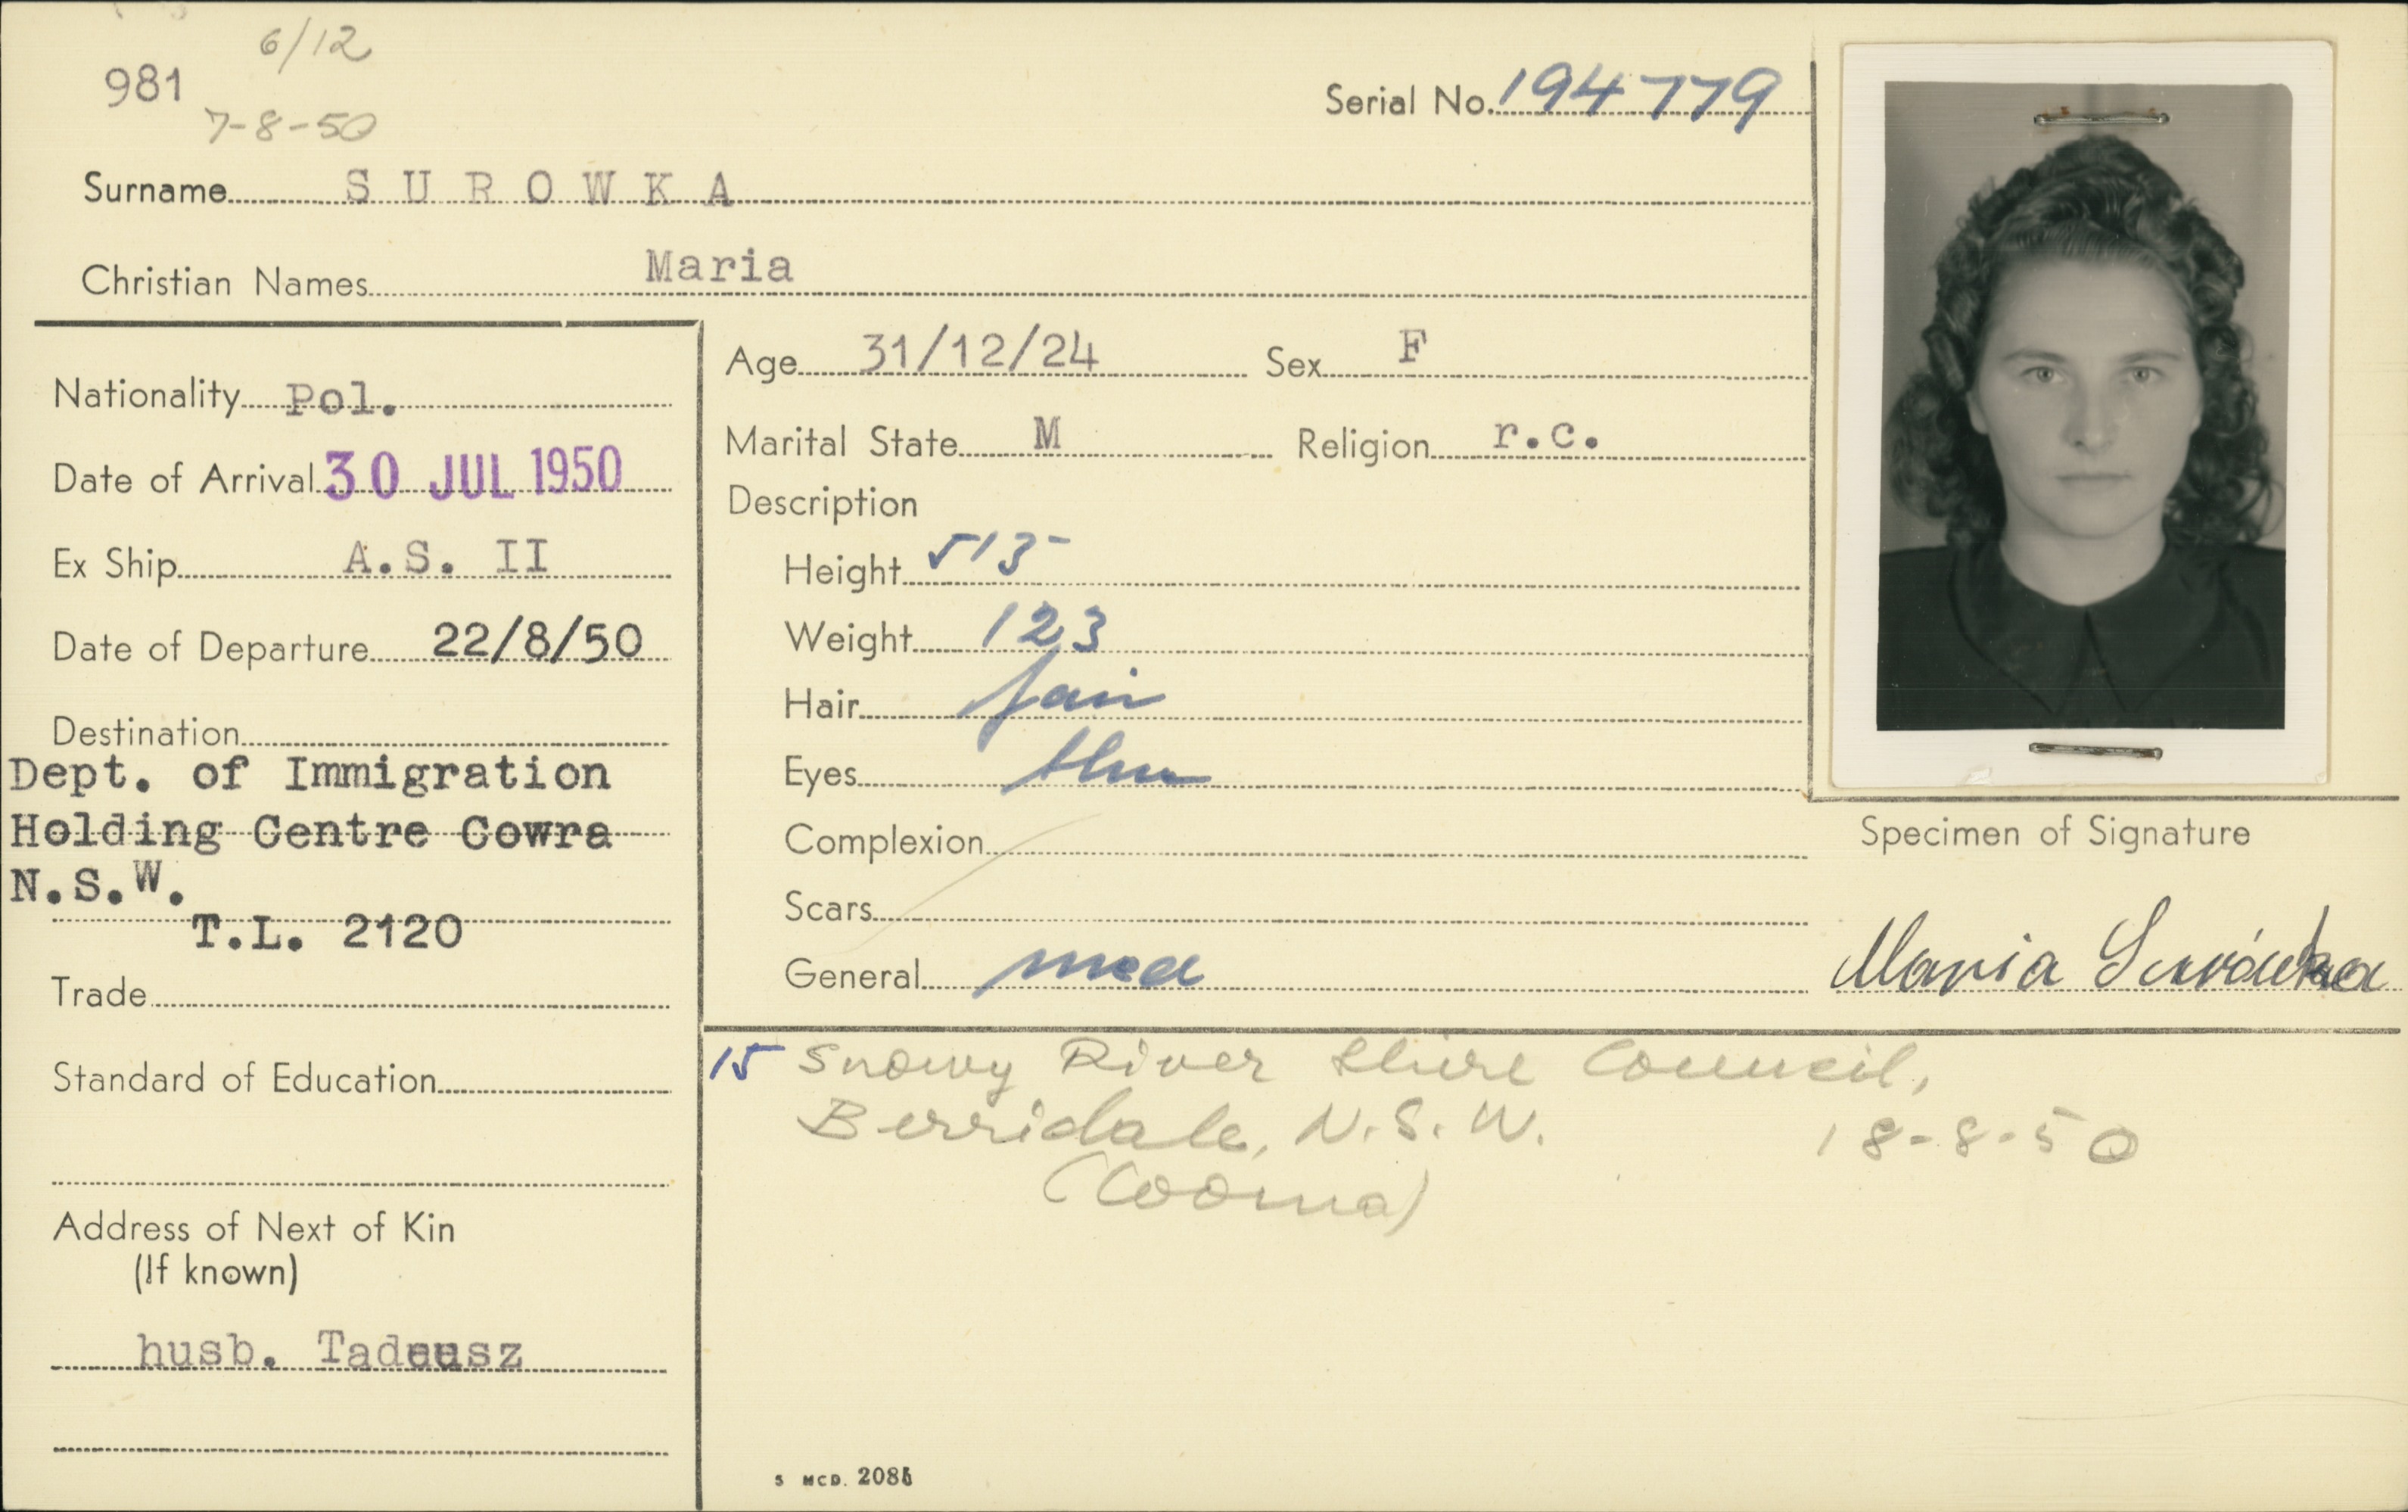 6/12
981
7-8-50
Serial No. 194779
Surname SUROWKA
Christian Names Maria
Nationality Pol.
Date of Arrival 30 JUL 1950
Ex Ship A.S. II
Date of Departure 22/8/50
Destination
Dept. of Immigration
Holding Centre Cowra
N.S.W.
T.L. 2120
Trade
Standard of Education
Address of Next of Kin
(If known)
husb. Tadeusz
Age 31/12/24 Sex F
Marital State M Religion r.c.
Description
Height 5'3"
Weight 123
Hair fair
Eyes blue
Complexion
Scars
General med
Specimen of Signature
Maria Surówka
15 Snowy River Shire Council,
Berridale, N.S.W. 18-8-50
(Cooma)
S MCD. 2086